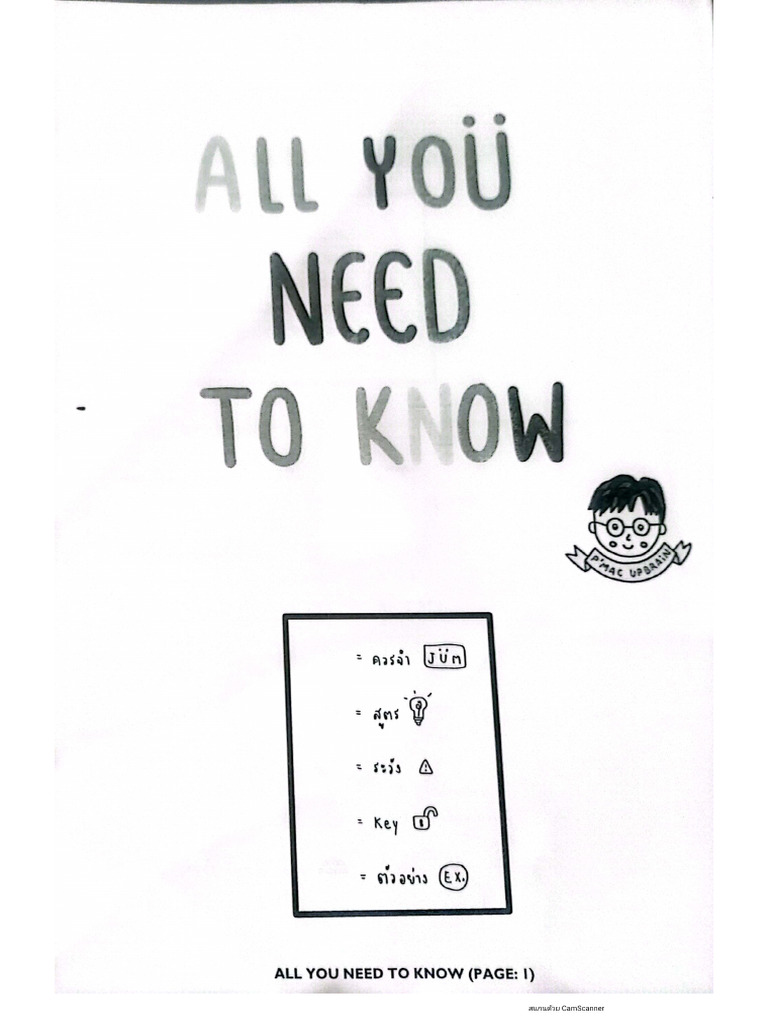 ALL YOÜ
NEED
TO KNOW
P'MAC UPBRAIN
= ควรจำ JÜM
= สูตร
= ระวัง
= Key
= ตัวอย่าง EX.
ALL YOU NEED TO KNOW (PAGE: 1)
สแกนด้วย CamScanner